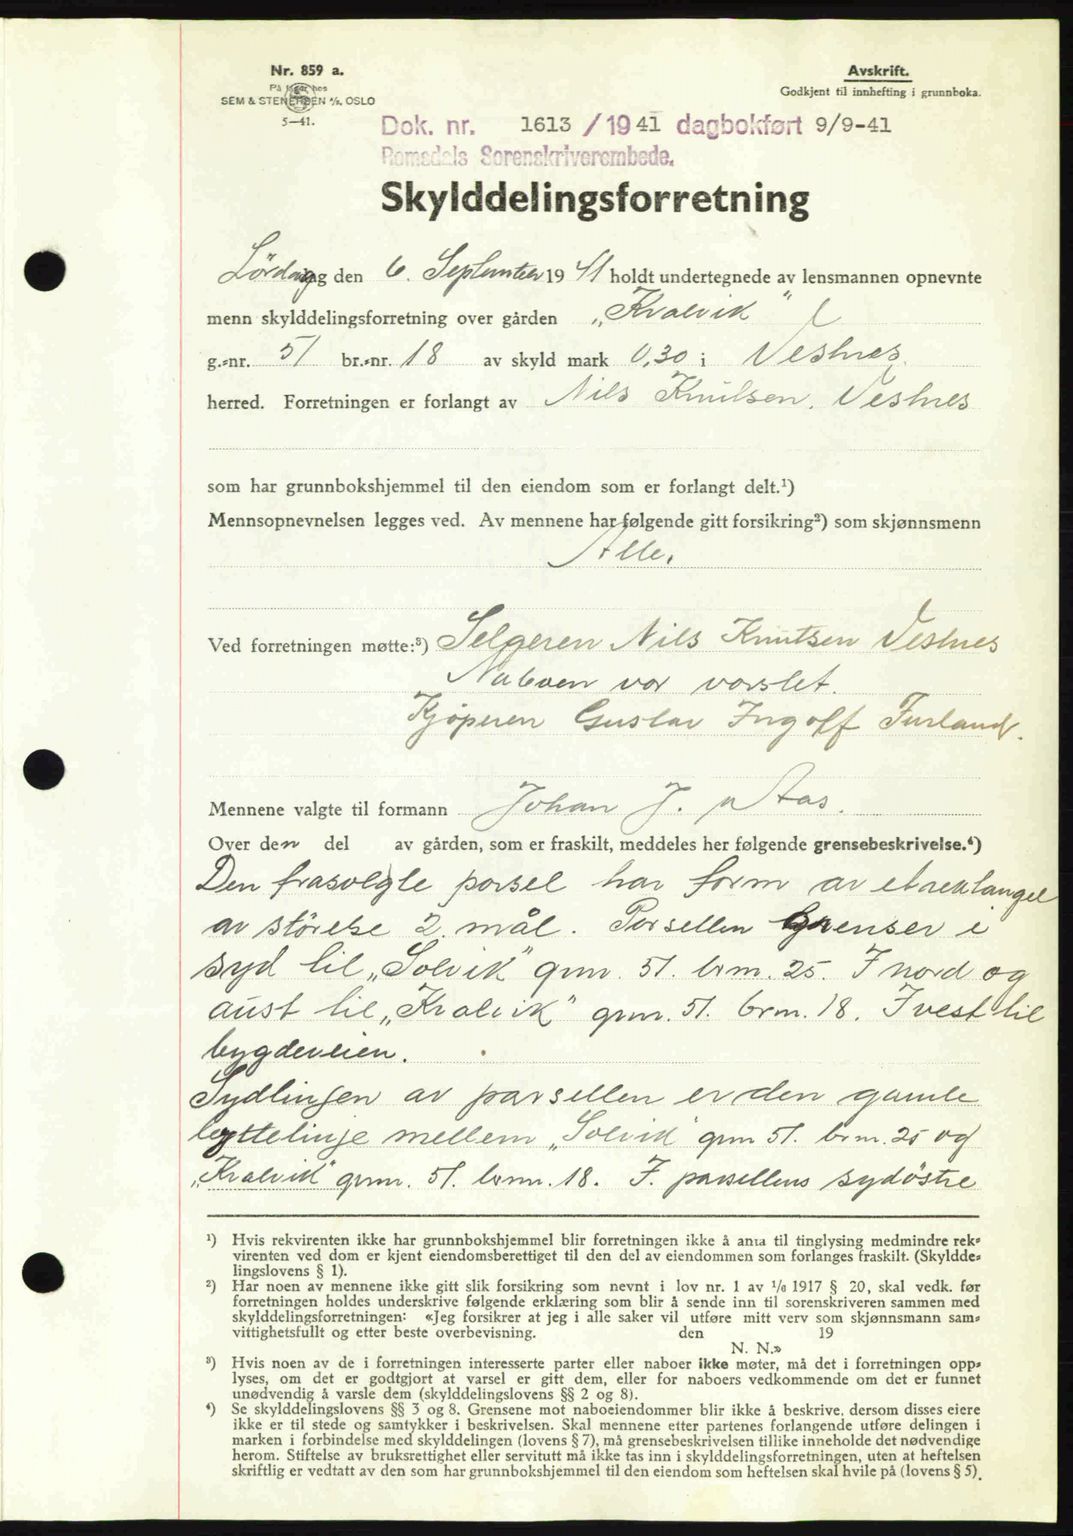 Nr. 859 a.
På lager hos
SEM & STENERSEN A/S. OSLO
5—41.
Avskrift.
Godkjent til innhefting i grunnboka.
Dok. nr. 1613 /1941 dagbokført 9/9-41
Romsdals Sorenskriverembede.
Skylddelingsforretning
Lördag den 6. September 1941 holdt undertegnede av lensmannen opnevnte
menn skylddelingsforretning over gården „Kvalvik"
g.-nr. 51 br.-nr. 18 av skyld mark 0,30 i Vestnes
herred. Forretningen er forlangt av Nils Knutsen. Vestnes
som har grunnbokshjemmel til den eiendom som er forlangt delt.¹)
Mennsopnevnelsen legges ved. Av mennene har følgende gitt forsikring²) som skjønnsmenn
Alle.
Ved forretningen møtte:³) Selgeren Nils Knutsen Vestnes
Naboen var varslet.
Kjöperen Gustav Ingolf Furland.
Mennene valgte til formann Johan J. Aas.
Over den del av gården, som er fraskilt, meddeles her følgende grensebeskrivelse.⁴)
Den frasolgte parsel har form av et rektangel
av störelse 2. mål. Parsellen grenser i
syd til „Solvik" gnr. 51. brn. 25. I nord og
aust til „Kvalvik" gnr. 51. brn. 18. I vest til
bygdeveien.
Sydlinjen av parsellen er den gamle
byttelinje mellem „Solvik" gnr 51. brn. 25 og
„Kvalvik" gnr. 51. brn. 18. I. parsellens sydöstre
¹) Hvis rekvirenten ikke har grunnbokshjemmel blir forretningen ikke å anta til tinglysing medmindre rek-
virenten ved dom er kjent eiendomsberettiget til den del av eiendommen som forlanges fraskilt. (Skyldde-
lingslovens § 1).
²) Har noen av mennene ikke gitt slik forsikring som nevnt i lov nr. 1 av 1/6 1917 § 20, skal vedk. før
forretningen holdes underskrive følgende erklæring som blir å sende inn til sorenskriveren sammen med
skylddelingsforretningen: «Jeg forsikrer at jeg i alle saker vil utføre mitt verv som skjønnsmann sam-
vittighetsfullt og etter beste overbevisning. den 19
N. N.»
³) Hvis noen av de i forretningen interesserte parter eller naboer ikke møter, må det i forretningen opp-
lyses, om det er godtgjort at varsel er gitt dem, eller for naboers vedkommende om det er funnet
unødvendig å varsle dem (skylddelingslovens §§ 2 og 8).
⁴) Se skylddelingslovens §§ 3 og 8. Grensene mot naboeiendommer blir ikke å beskrive, dersom disses eiere
ikke er til stede og samtykker i beskrivelsen. Skal mennene etter partenes forlangende utføre delingen i
marken i forbindelse med skylddelingen (lovens § 7), må grensebeskrivelsen tillike inneholde det nødvendige
herom. Stiftelse av bruksrettighet eller servitutt må ikke tas inn i skylddelingsforretningen, uten at heftelsen
skriftlig er vedtatt av den som har grunnbokshjemmel til den eiendom som heftelsen skal hvile på (lovens § 5).